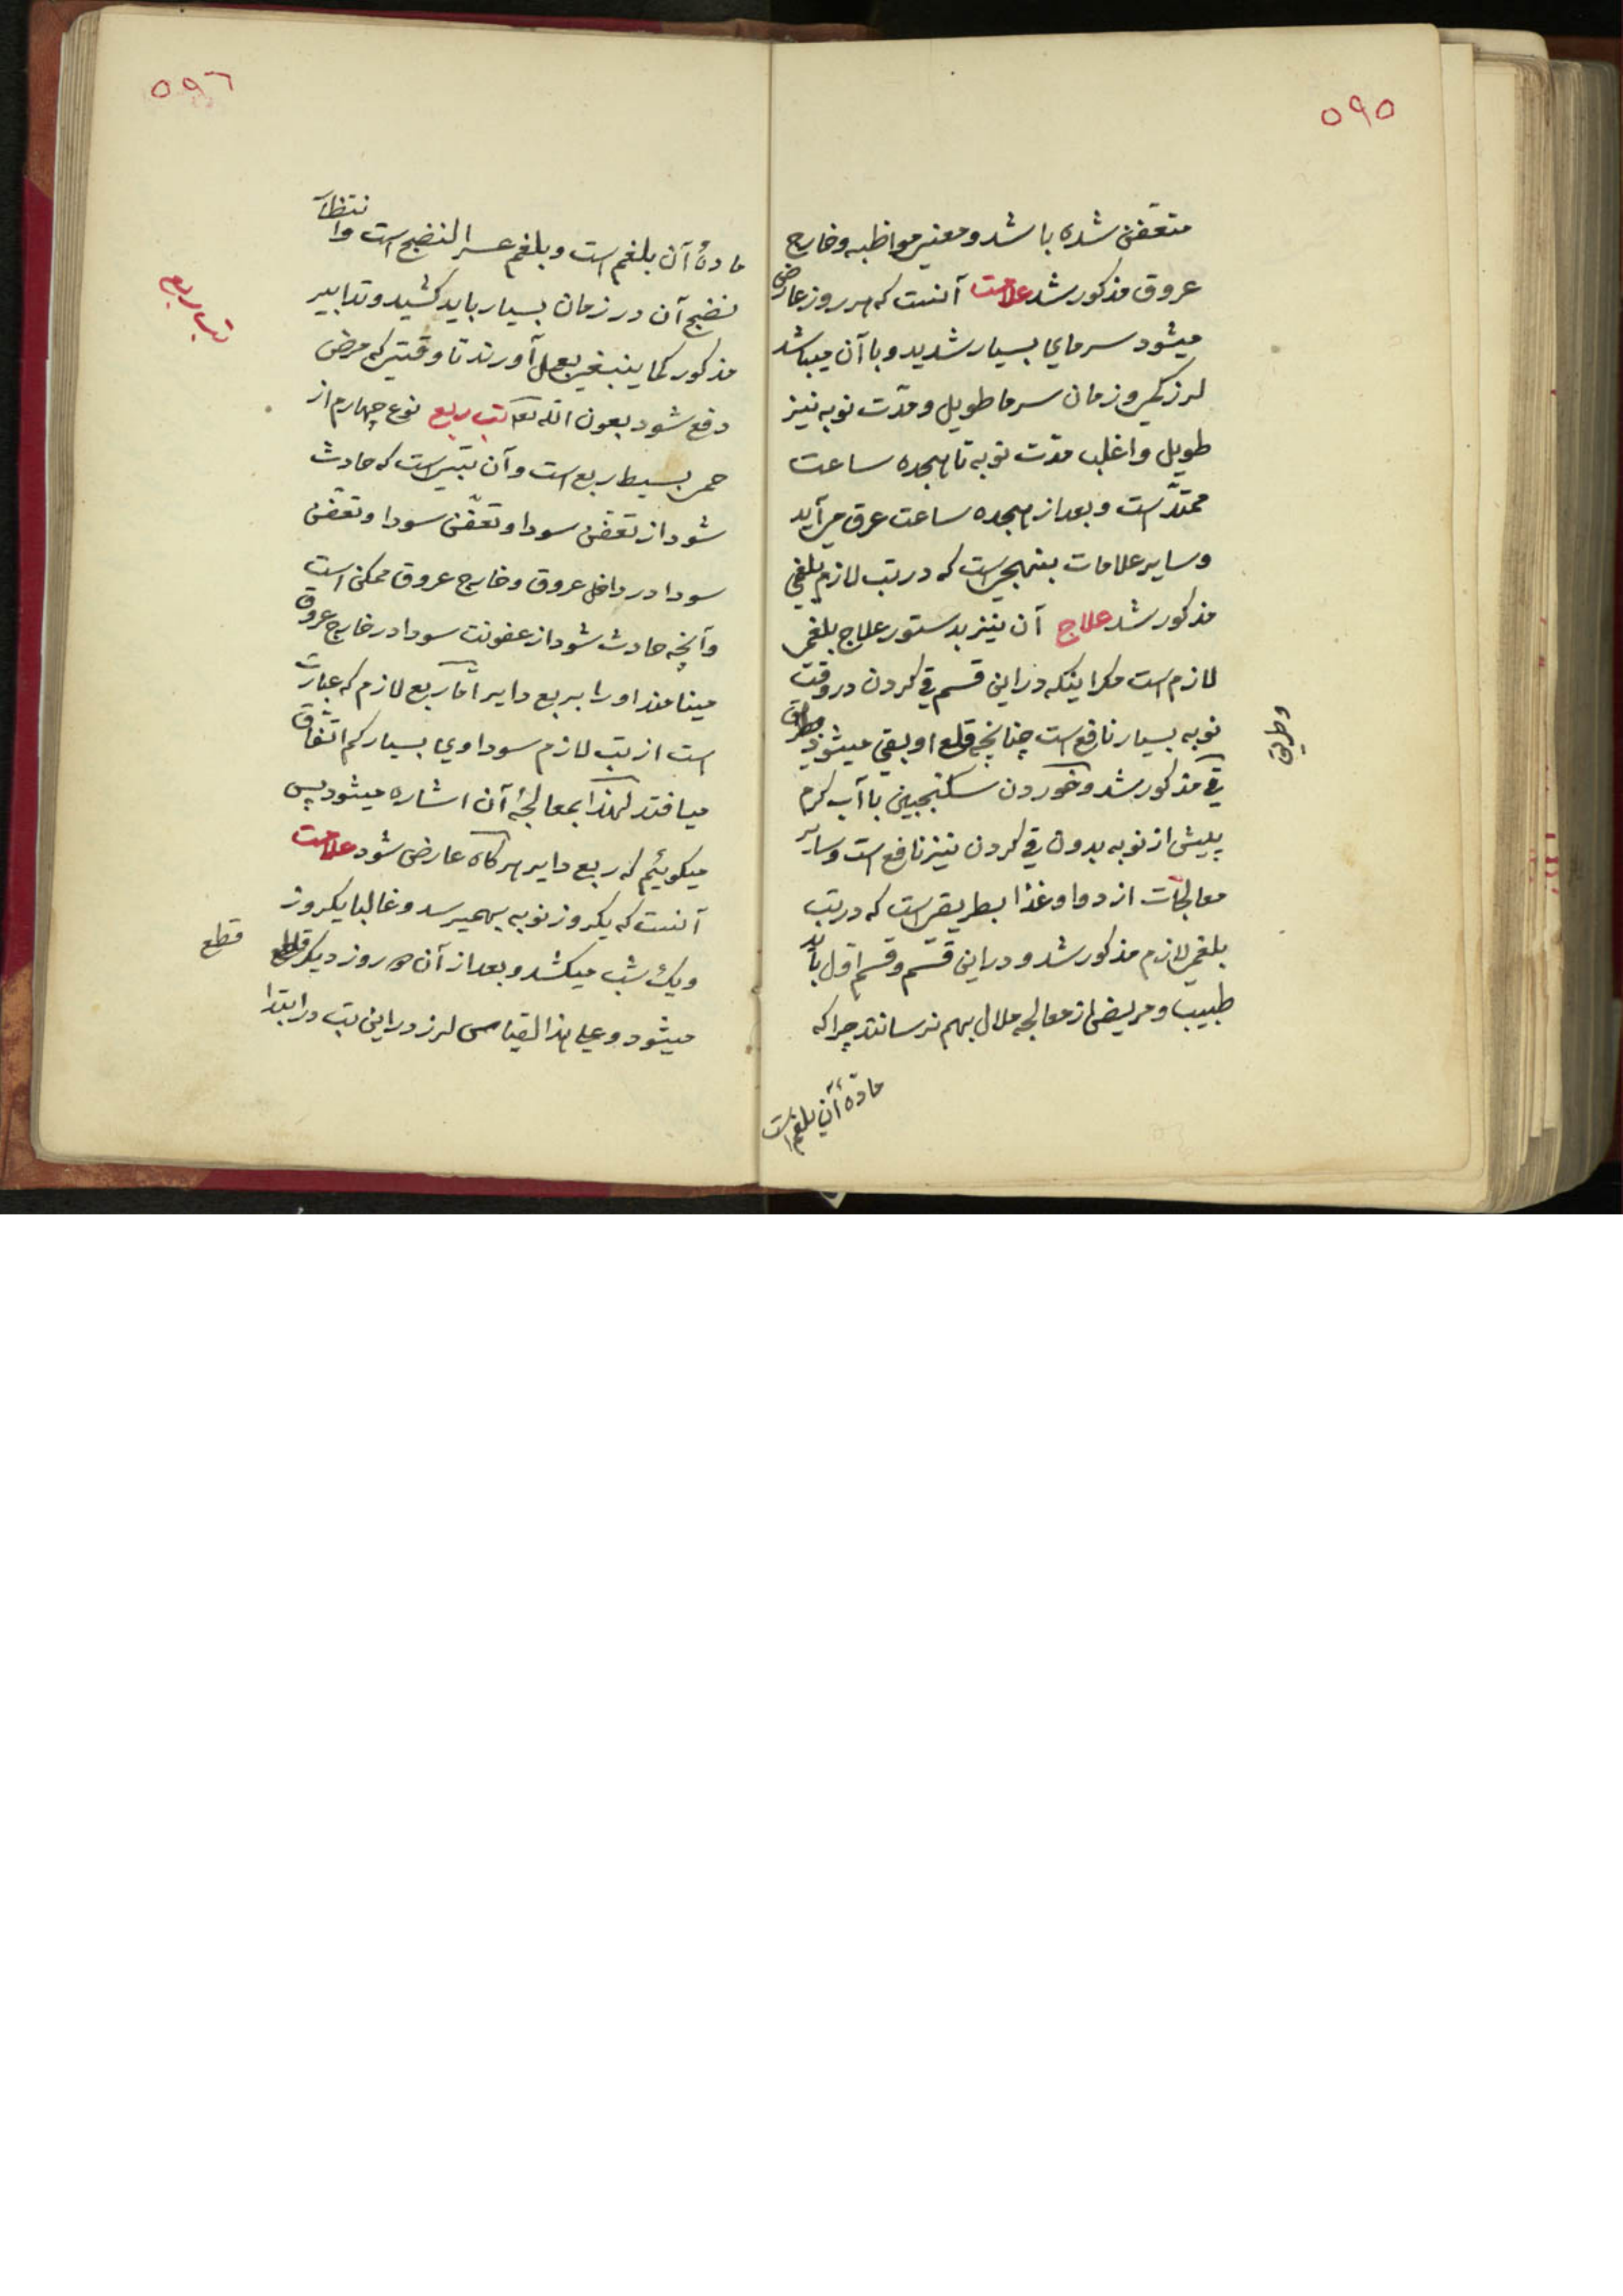 ۵۹۵
متعفّن شده باشد و معنی مواظبه و خارج
عروق مذکور شد علامت آنست که هر روز عارض
میشود سرمای بسیار شدید و با آن میباشد
لرز کمی و زمان سرما طویل و مدّت نوبه نیز
طویل و اغلب مدّت نوبه تا هیجده ساعت
ممتدّ است و بعد از هیجده ساعت عرق می آید
و سایر علامات بنهجی است که در تب لازم بلغمی
مذکور شد علاج آن نیز بدستور علاج بلغمی
لازم است مکر اینکه در این قسم قی کردن در وقت
نوبه بسیار نافع است چنانچه قلع او بقی میشود
وطریق
قی مذکور شد و خوردن سکنجبین با آب کرم
پیش از نوبه بدون قی کردن نیز نافع است و سایر
معالجات از دوا و غذا بطریقی است که در تب
بلغمی لازم مذکور شد و در این قسم و قسم اول باید
طبیب و مریض از معالجه ملال بهم نرسانند چرا که
مادّهٔ آن بلغم است
۵۹٦
مادهٔ آن بلغم است و بلغم عسر النضج است و انتظار
نضج آن در زمان بسیار باید کشید و تدابیر
مذکور کما ینبغی بعمل آورند تا وقتی که مرض
دفع شود بعون الله تعا تب ربع نوع چهارم از
تب ربع
حمی بسیط ربع است و آن تبی است که حادث
شود از تعفّن سودا و تعفّن سودا و تعفّن
سودا در داخل عروق و خارج عروق ممکن است
و آنچه حادث شود از عفونت سودا در خارج عروق
مینامند او را بربع دایر امّا ربع لازم که عبارت
است از تب لازم سوداوی بسیار کم اتّفاق
میافتد لهذا بمعالجهٔ آن اشاره میشود پس
میکوئیم که ربع دایر هرکاه عارض شود علامت
آنست که یکروز نوبه بهمیرسد و غالبا یکروز
و یک شب میکشد و بعد از آن دو روز دیکر
قطع
میشود و علی هذا القیاس لرز در این تب در ابتدا